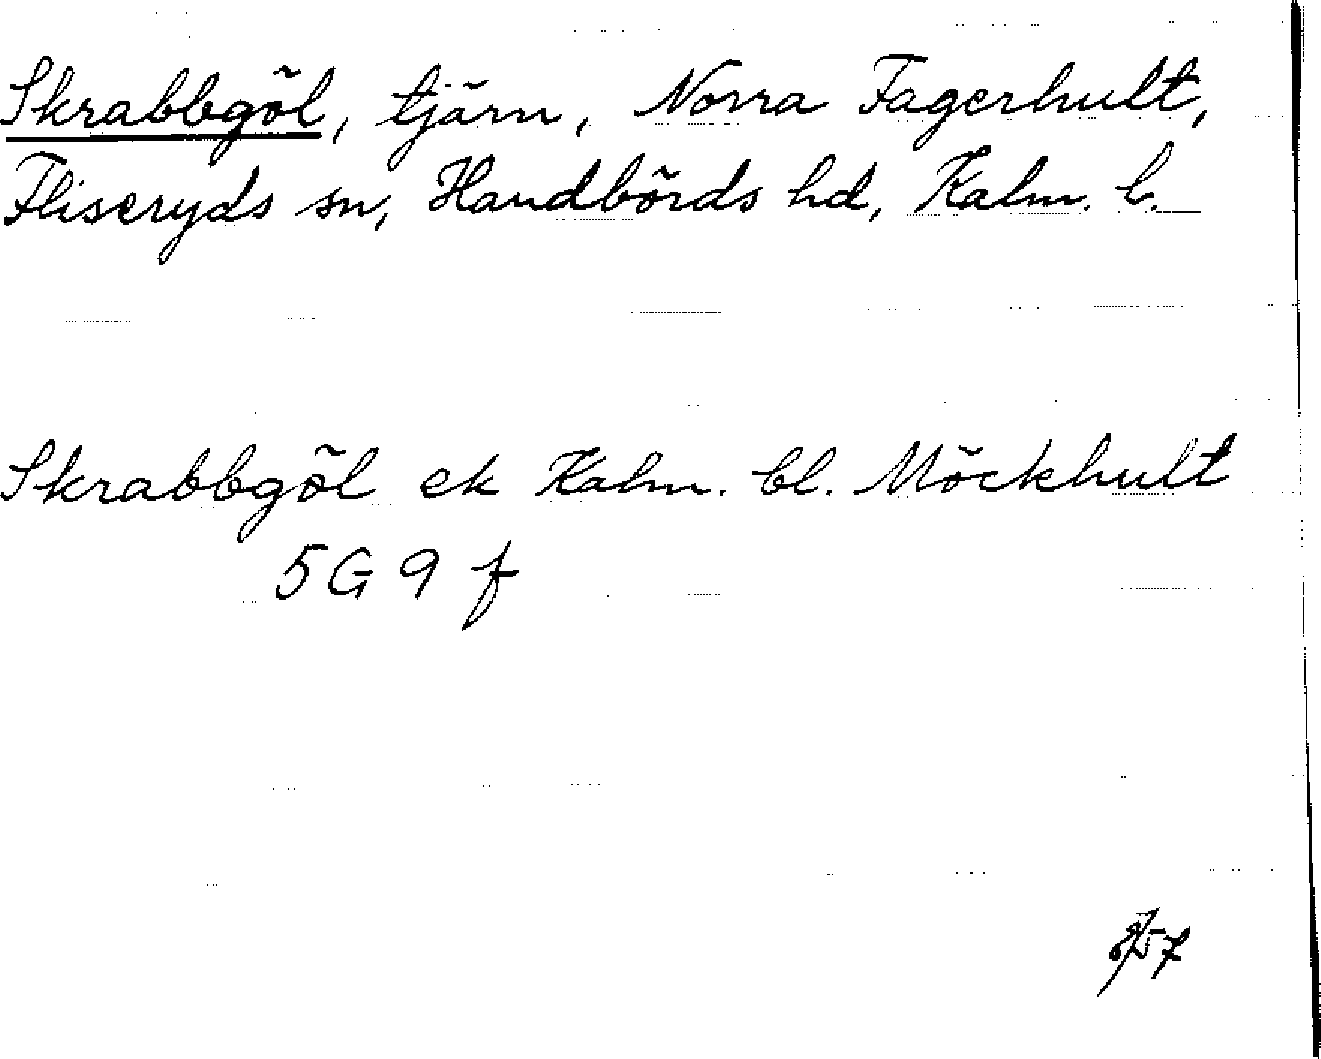 Skrabbgöl, tjärn, Norra Fagerhult,
Fliseryds sn, Handbörds hd, Kalm. l.
Skrabbgöl ek Kalm. bl. Möckhult
5G 9 f